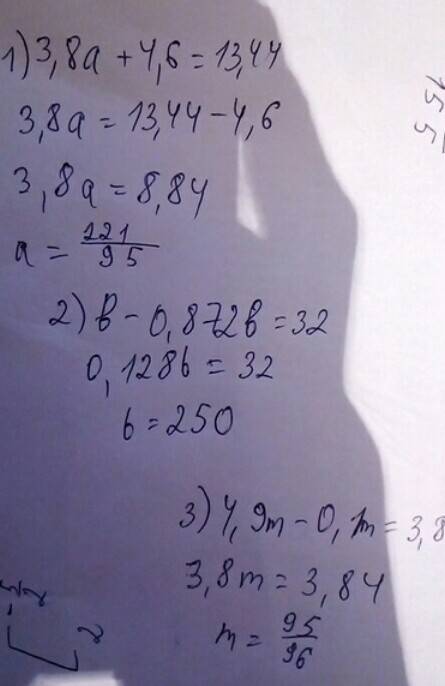 1) 3,8a + 4,6 = 13,44
3,8a = 13,44 - 4,6
3,8a = 8,84
a = 221/95
2) в - 0,872в = 32
0,128в = 32
в = 250
3) 4,9m - 0,1m = 3,8
3,8m = 3,84
m = 95/96